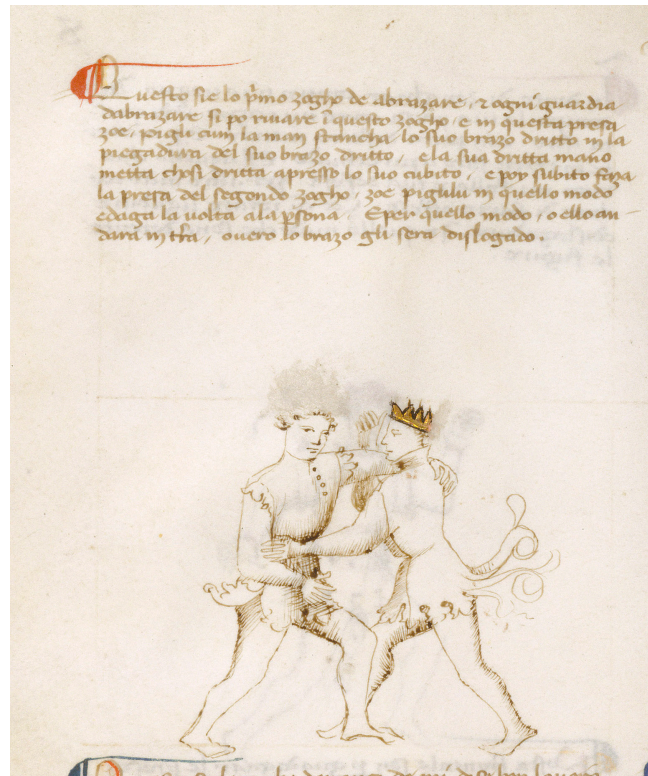 Questo sie lo p̃mo zogho de abrazare, ⁊ ogni guardia
dabrazare si po rivare ĩ questo zogho, e in questa presa
zoe, pigli cum la man stancha lo suo brazo dritto in la
piegadura del suo brazo dritto, e la sua dritta mano
metta chosi dritta apresso lo suo cubito, e poy subito faza
la presa del segondo zogho, zoe pigulu in quello modo
e daga la volta a la p̱sona. E per quello modo, o ello an-
dara in t̃ra, overo lo brazo gli sera dislogado.